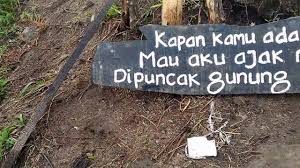 Kapan kamu ada
Mau aku ajak
Dipuncak gunung